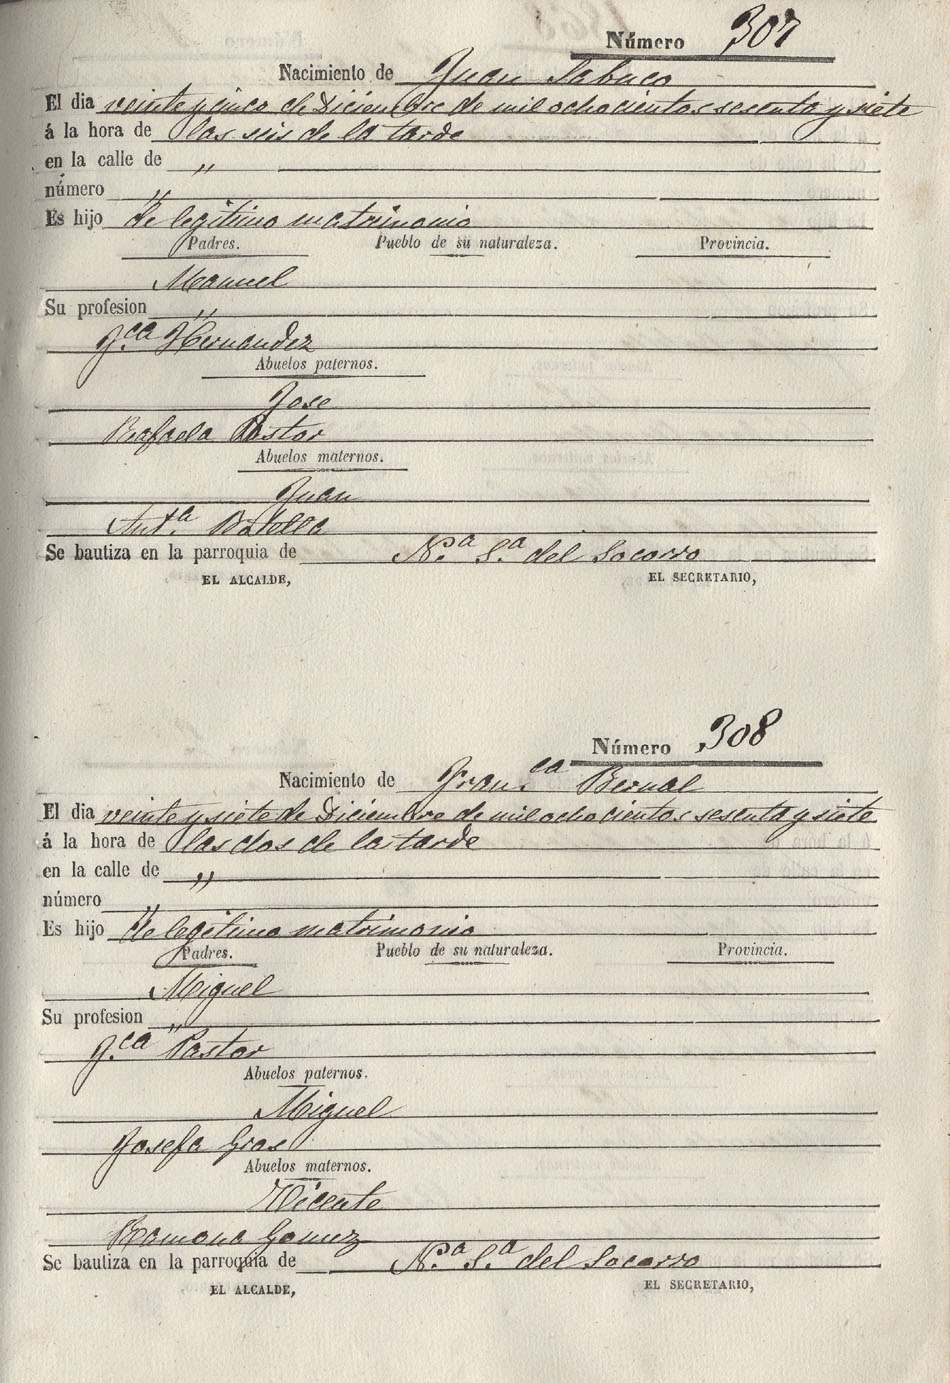 Número 307
Nacimiento de Juan Sabuco
El dia veinte y cinco de Diciembre de mil ochocientos sesenta y siete
á la hora de las seis de la tarde
en la calle de "
número "
Es hijo de legitimo matrimonio
Padres. Pueblo de su naturaleza. Provincia.
Manuel
Su profesion "
Fca Hernandez
Abuelos paternos.
Jose
Rafaela Pastor
Abuelos maternos.
Juan
Anta. Botella
Se bautiza en la parroquia de N.a S.a del Socorro
EL ALCALDE, EL SECRETARIO,
Número 308
Nacimiento de Fran.ca Bernal
El dia veinte y siete de Diciembre de mil ochocientos sesenta y siete
á la hora de las dos de la tarde
en la calle de "
número "
Es hijo de legitimo matrimonio
Padres. Pueblo de su naturaleza. Provincia.
Miguel
Su profesion "
F.ca Pastor
Abuelos paternos.
Miguel
Josefa Gras
Abuelos maternos.
Vicente
Ramona Gomez
Se bautiza en la parroquia de N.a S.a del Socorro
EL ALCALDE, EL SECRETARIO,